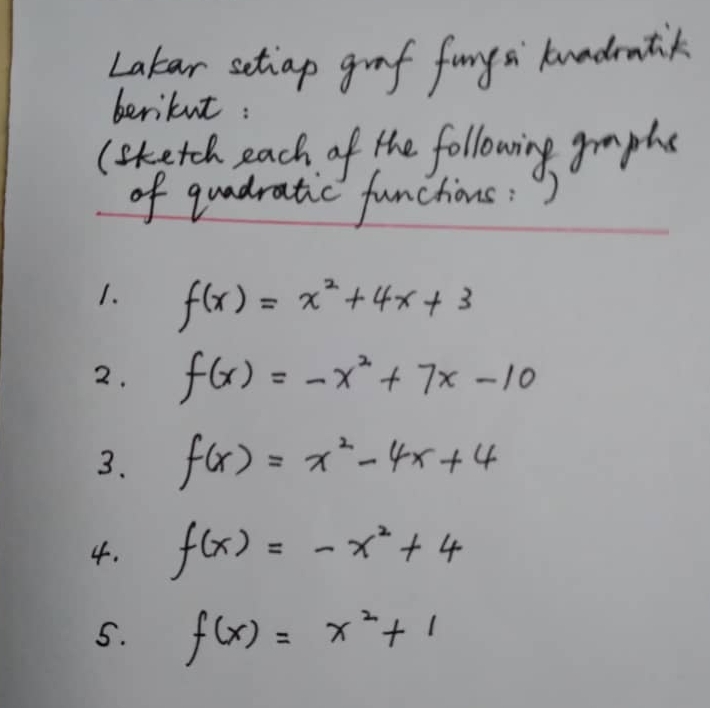 Lakar setiap graf fungsi kuadratik
berikut :
(sketch each of the following graphs
of quadratic functions : )
1. f(x) = x² + 4x + 3
2. f(x) = -x² + 7x - 10
3. f(x) = x² - 4x + 4
4. f(x) = - x² + 4
5. f(x) = x² + 1